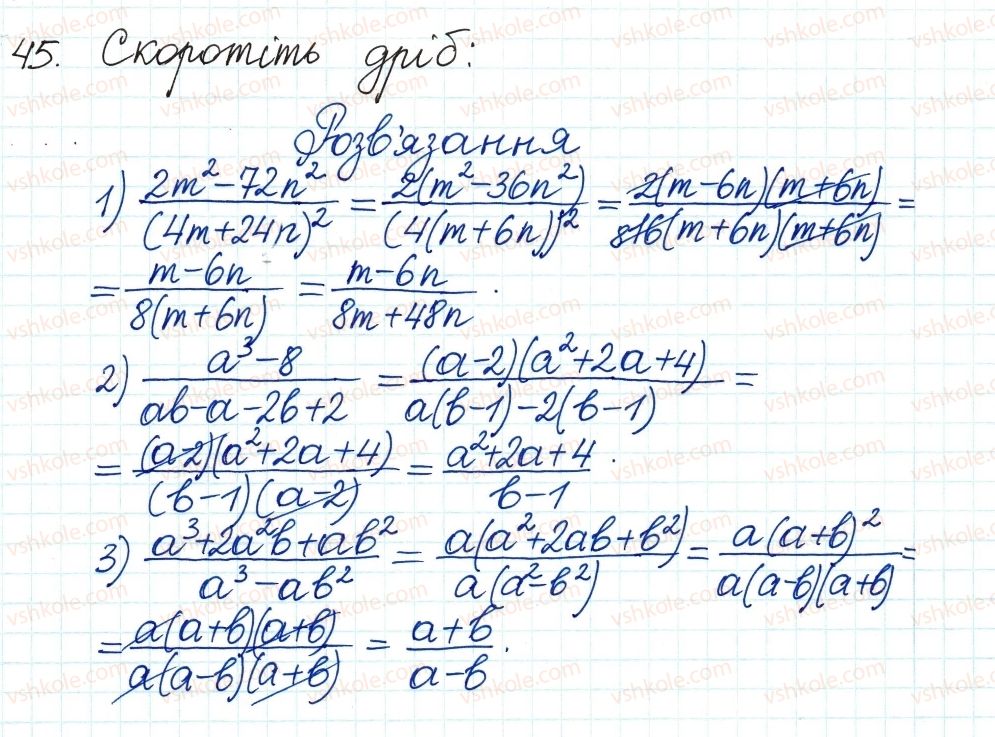 45. Скоротіть дріб:
Розв'язання
1) (2m²-72n²)/(4m+24n)² = 2(m²-36n²)/(4(m+6n))² = 2(m-6n)(m+6n)/816(m+6n)(m+6n) =
= (m-6n)/8(m+6n) = (m-6n)/(8m+48n).
2) (a³-8)/(ab-a-2b+2) = (a-2)(a²+2a+4)/(a(b-1)-2(b-1)) =
= (a-2)(a²+2a+4)/(b-1)(a-2) = (a²+2a+4)/(b-1).
3) (a³+2a²b+ab²)/(a³-ab²) = a(a²+2ab+b²)/a(a²-b²) = a(a+b)²/a(a-b)(a+b) =
= a(a+b)(a+b)/a(a-b)(a+b) = (a+b)/(a-b).
vshkole.com